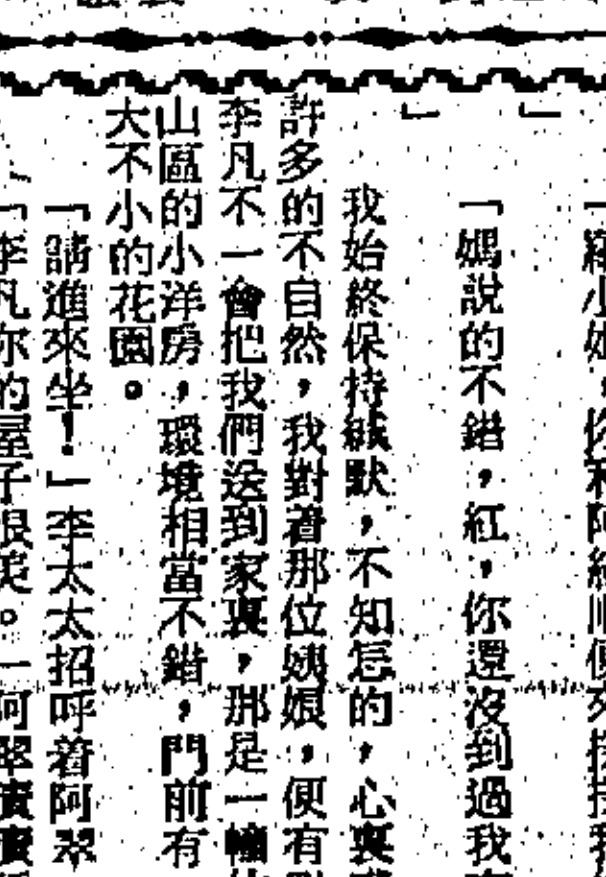 「羅小姐,你和阿綠順便來探
」
「媽說的不錯,紅,你還沒到過我
」
我始終保持緘默,不知怎的,心裏
許多的不自然,我對着那位姨娘,便有
李凡不一會把我們送到家裏,那是一幢
山區的小洋房,環境相當不錯,門前有
大不小的花園。
「請進來坐!」李太太招呼着阿翠
「李凡你的屋子很美。」阿翠